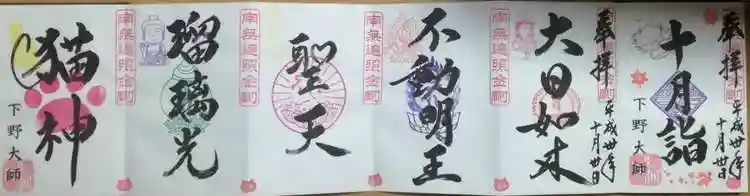 奉拝
平成卅年
十月卅日
十月詣
下野大師
奉拝
平成卅年
十月卅日
大日如来
南無遍照金剛
不動明王
南無遍照金剛
聖天
南無遍照金剛
瑠璃光
南無遍照金剛
猫神
下野大師